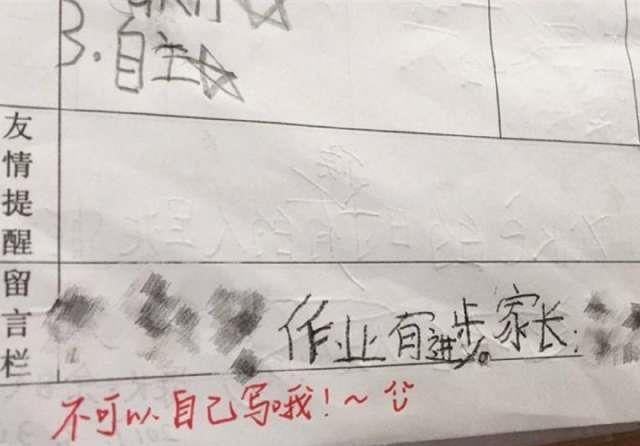 3.自主☆
友情提醒
留言栏
作业有进步。家长:
不可以自己写哦!~